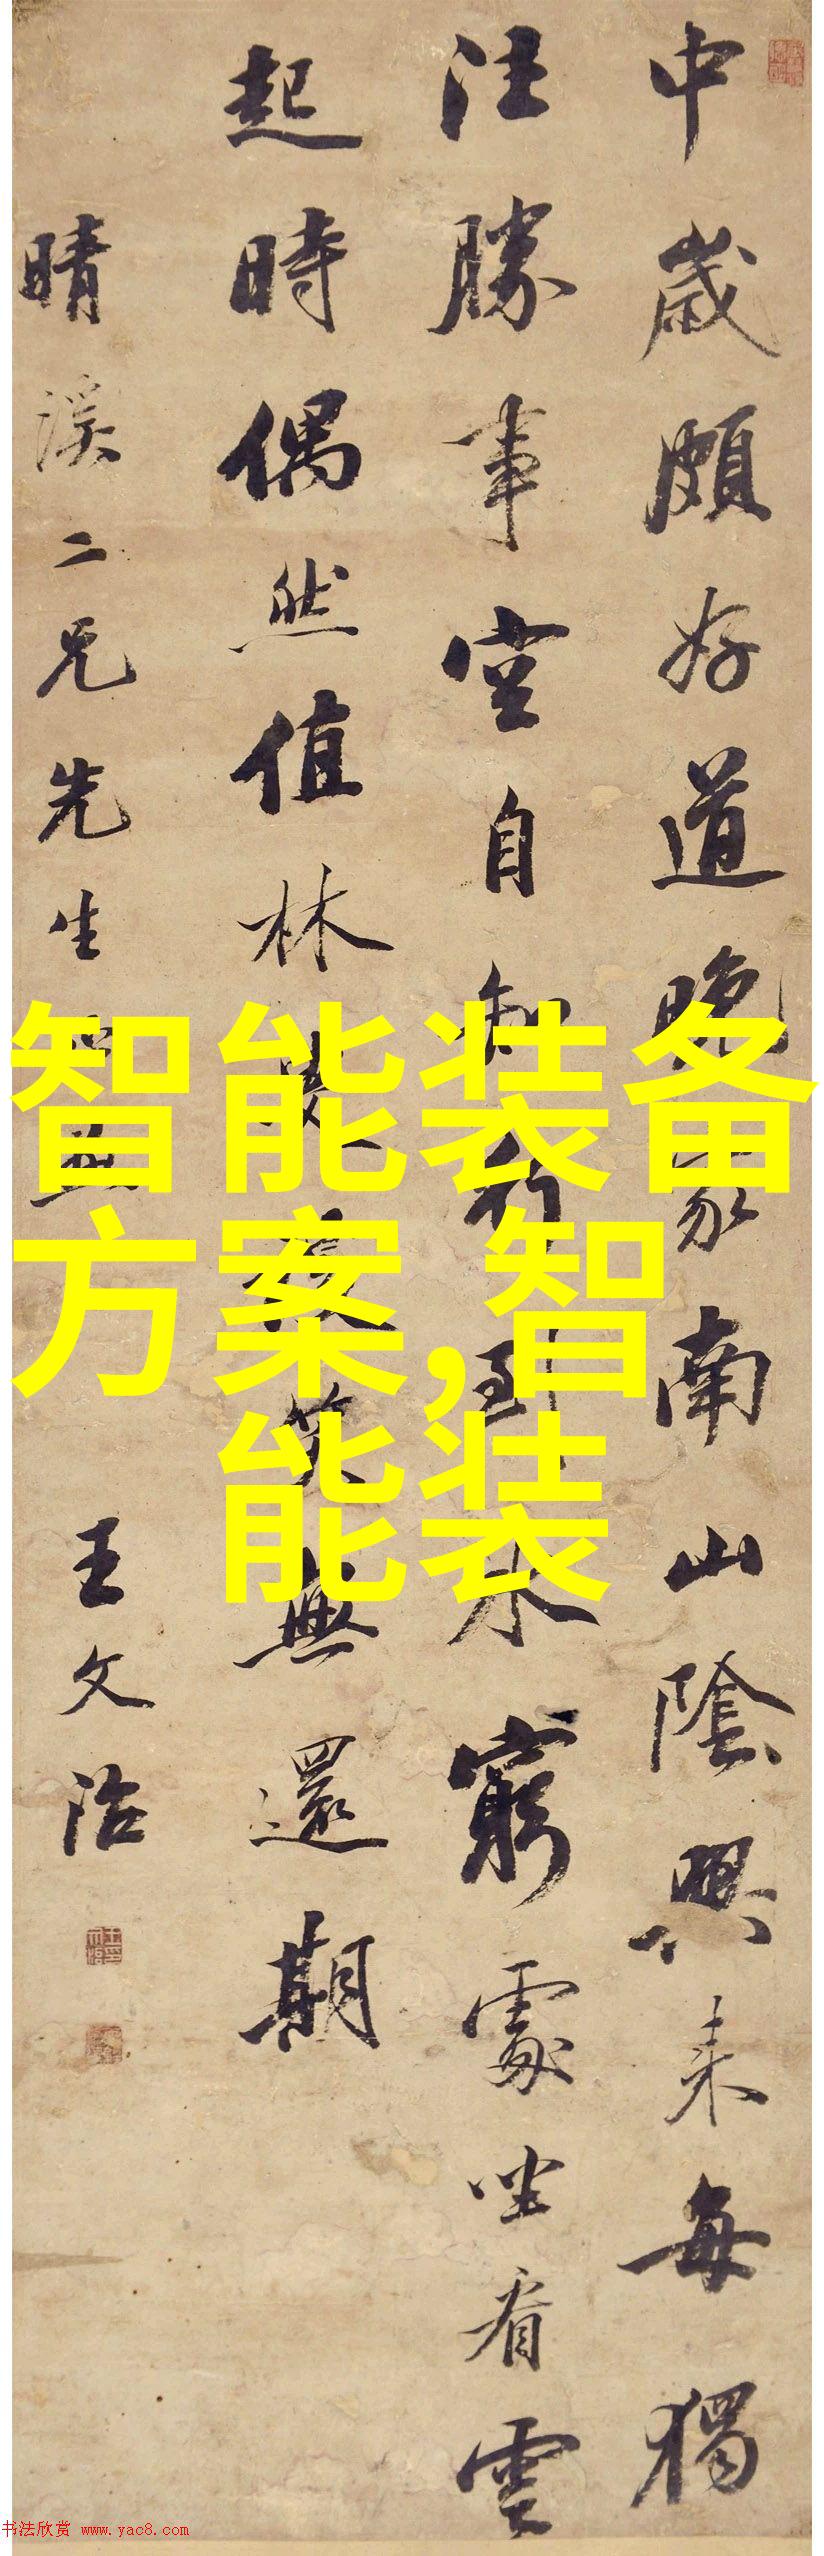 中歲頗好道晚家南山陰興來每獨
往勝事空自知行到水窮處坐看雲
起時偶然值林叟談笑無還期
晴溪二兄先生
王文治
智能装备
方案,智
能装
书法欣赏 www.yac8.com